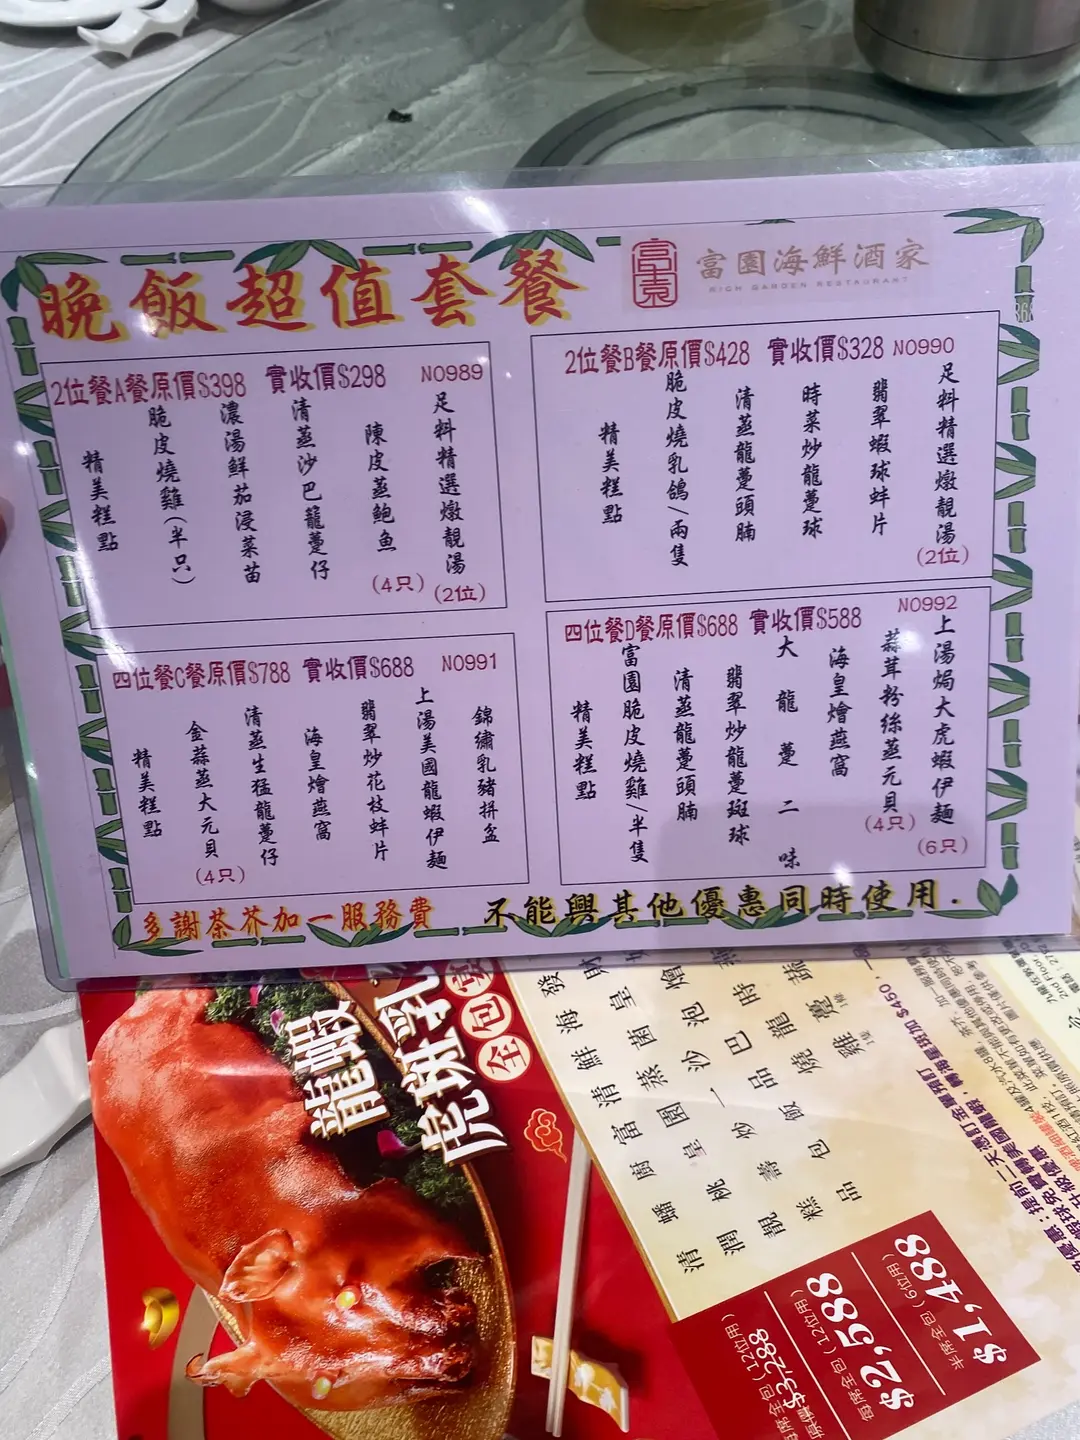 晚飯超值套餐
富園海鮮酒家
RICH GARDEN RESTAURANT
2位餐A餐原價$398 實收價$298 NO989
足料精選燉靚湯(2位)
陳皮蒸鮑魚(4只)
清蒸沙巴龍躉仔
濃湯鮮茄浸菜苗
脆皮燒雞(半只)
精美糕點
2位餐B餐原價$428 實收價$328 NO990
足料精選燉靚湯(2位)
翡翠蝦球蚌片
時菜炒龍躉球
清蒸龍躉頭腩
脆皮燒乳鴿/兩隻
精美糕點
四位餐C餐原價$788 實收價$688 NO991
錦繡乳豬拼盆
上湯美國龍蝦伊麵
翡翠炒花枝蚌片
海皇燴燕窩
清蒸生猛龍躉仔
金蒜蒸大元貝(4只)
精美糕點
四位餐D餐原價$688 實收價$588 NO992
上湯焗大虎蝦伊麵(6只)
蒜茸粉絲蒸元貝(4只)
海皇燴燕窩
大龍躉二味
翡翠炒龍躉斑球
清蒸龍躉頭腩
富園脆皮燒雞/半隻
精美糕點
多謝茶芥加一服務費
不能興其他優惠同時使用.
龍蝦
虎斑乳
全包宴
半席全包(6位用)
$1,488
每席全包(12位用)
$2,588
每席全包(12位用)
原價$3,288